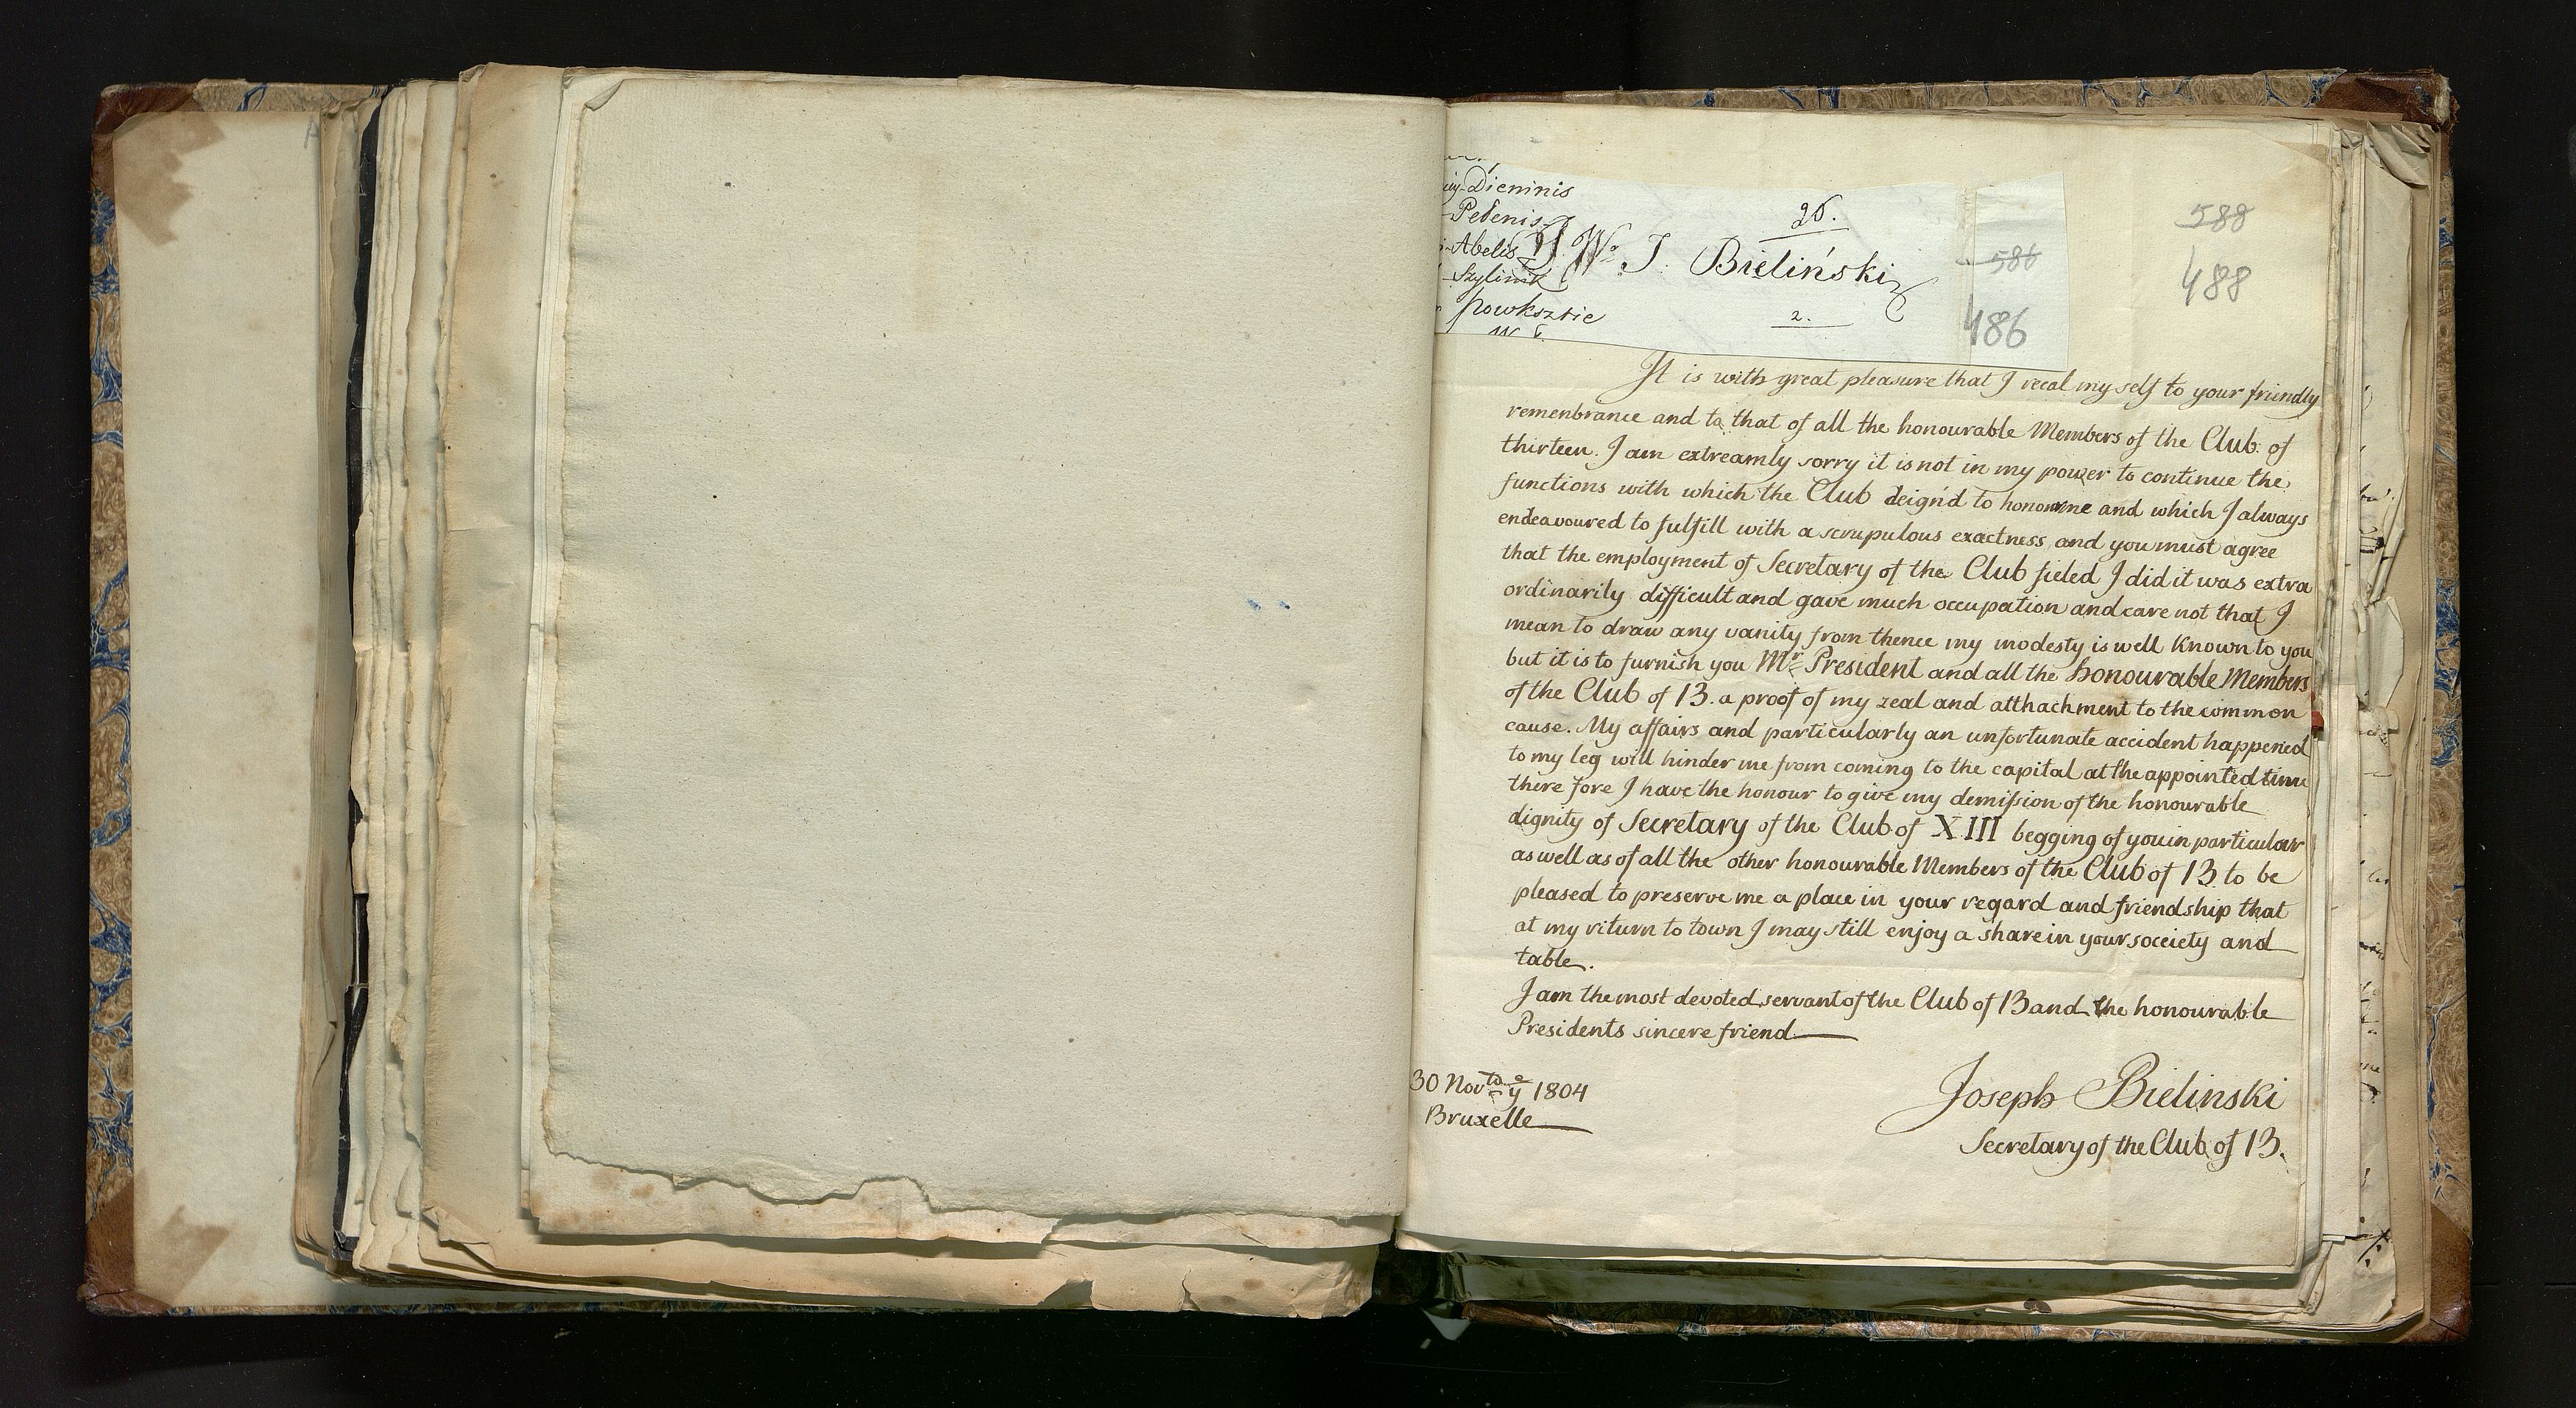 Dieninis
Pedenis
Abelis
Szylinik
Powksztie
26.
J. W. J. Bieliński
2.
586
486
588
488
It is with great pleasure that I recal my self to your friendly
remenbrance and to that of all the honourable Members of the Club of
thirteen. I am extreamly sorry it is not in my power to continue the
functions with which the Club deign'd to honor me and which I always
endeavoured to fulfill with a scrupulous exactness and you must agree
that the employment of Secretary of the Club fieled I did it was extra
ordinarily difficult and gave much occupation and care not that I
mean to draw any vanity from thence my modesty is well Known to you
but it is to furnish you Mr President and all the honourable Members
of the Club of 13. a proof of my zeal and atthachment to the common
cause. My affairs and particularly an unfortunate accident happened
to my leg will hinder me from coming to the capital at the appointed time
there fore I have the honour to give my demission of the honourable
dignity of Secretary of the Club of XIII begging of you in particular
as well as of all the other honourable Members of the Club of 13 to be
pleased to preserve me a place in your regard and friendship that
at my riturn to town I may still enjoy a share in your socciety and
table.
I am the most devoted servant of the Club of 13 and the honourable
Presidents sincere friend
30 Nov 1804
Bruxelle
Joseph Bielinski
Secretary of the Club of 13.